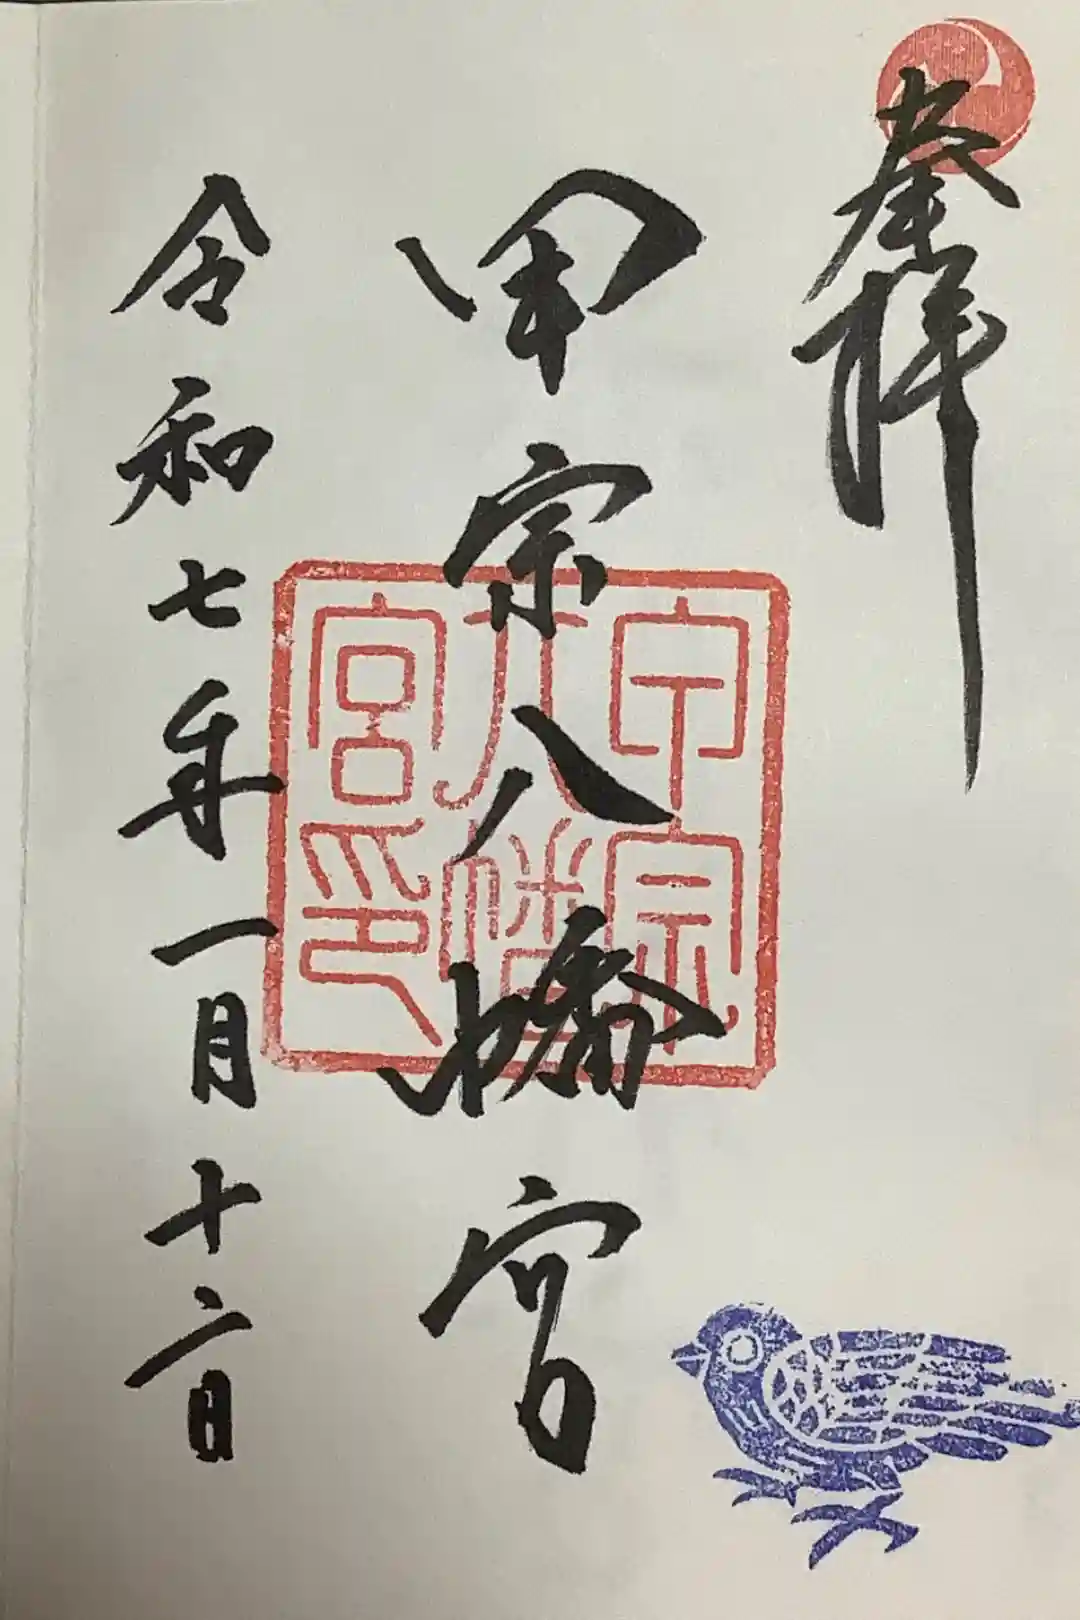 奉拝
甲宗八幡宮
甲宗八幡宮印
令和七年一月十二日